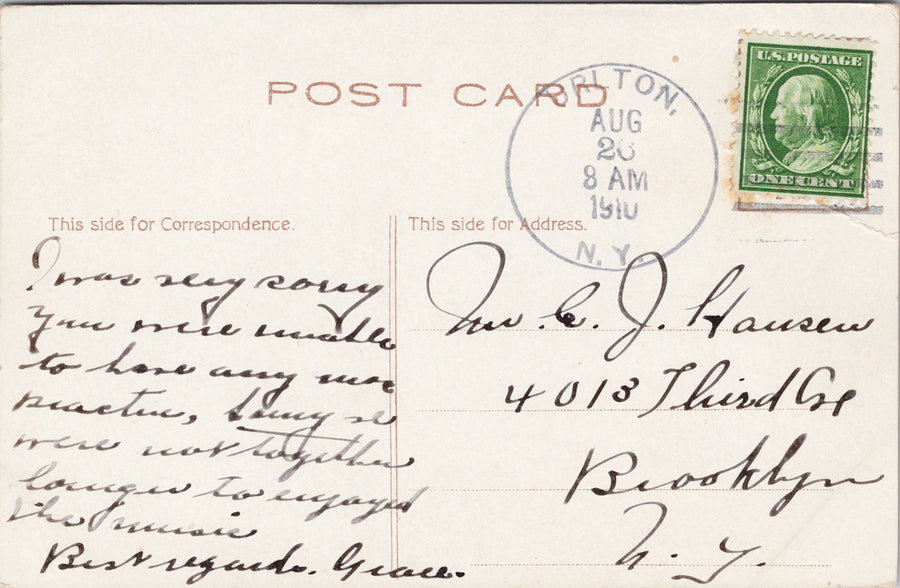 POST CARD
ORLTON,
AUG
26
8 AM
1910
N.Y.
U.S.POSTAGE
ONE CENT
This side for Correspondence.
This side for Address.
I was very sorry
you were unable
to have any more
practice,
were not together
longer to enjoyed
the music
Best regards. Grace.
Mr. C. J. Hansen
4013 Third Ave
Brooklyn
N. Y.